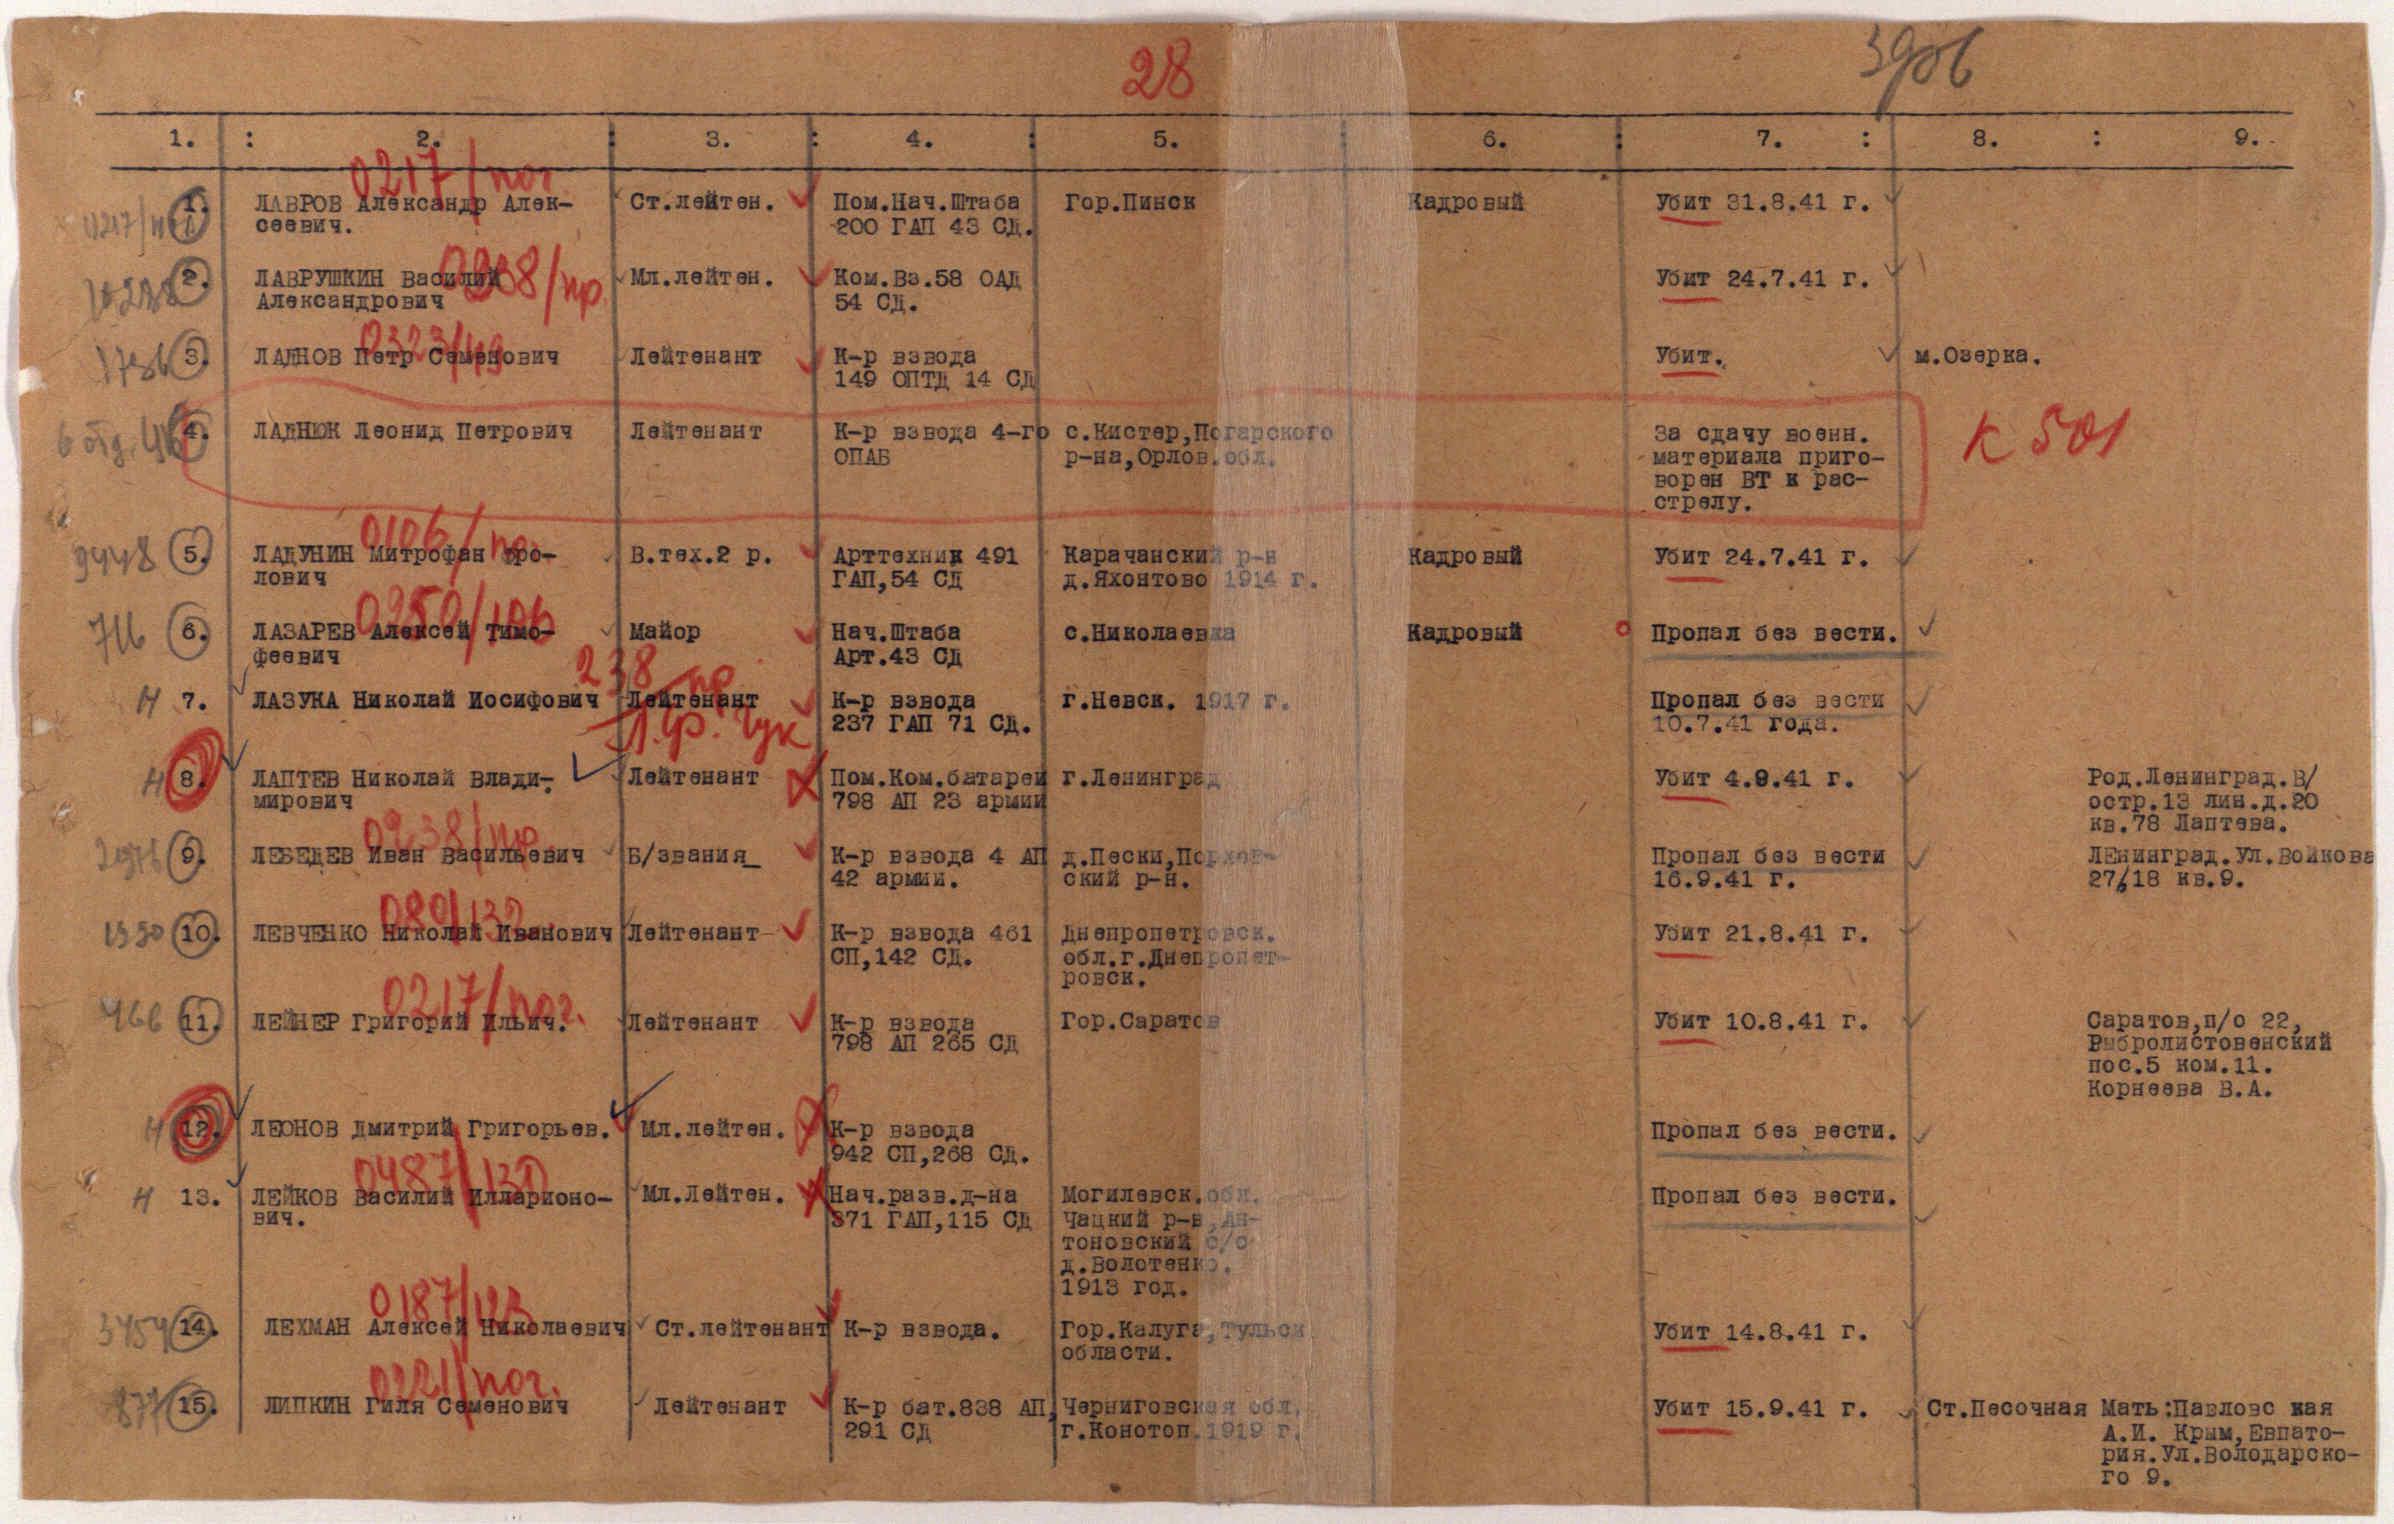 28
39об
1. : 2. : 3. : 4. : 5. : 6. : 7. : 8. : 9.
0217/пог.
1. ЛАВРОВ Александр Алек- Ст.лейтен. Пом.Нач.Штаба Гор.Пинск Кадровый Убит 31.8.41 г.
сеевич. 200 ГАП 43 СД.
0238/пр.
2. ЛАВРУШКИН Василий Мл.лейтен. Ком.Вз.58 ОАД Убит 24.7.41 г.
Александрович 54 СД.
0323/
1736 3. ЛАДНОВ Петр Семенович Лейтенант К-р взвода Убит. м.Озерка.
149 ОПТД 14 СД
4. ЛАДНЮК Леонид Петрович Лейтенант К-р взвода 4-го с.Кистер,Погарского За сдачу военн. К 501
ОПАБ р-на,Орлов.обл. материала приго-
ворен ВТ к рас-
стрелу.
0106/по
9448 5. ЛАДУНИН Митрофан Фро- В.тех.2 р. Арттехник 491 Карачанский р-н Кадровый Убит 24.7.41 г.
лович ГАП,54 СД д.Яхонтово 1914 г.
0250/106
716 6. ЛАЗАРЕВ Алексей Тимо- Майор Нач.Штаба с.Николаевка Кадровый Пропал без вести.
феевич Арт.43 СД
238 пр
Н 7. ЛАЗУКА Николай Иосифович Лейтенант К-р взвода г.Невск. 1917 г. Пропал без вести
237 ГАП 71 СД. 10.7.41 года.
Л.ф. гук
Н 8. ЛАПТЕВ Николай Влади- Лейтенант Пом.Ком.батареи г.Ленинград Убит 4.9.41 г. Род.Ленинград.В/
мирович 798 АП 23 армии остр.13 лин.д.20
кв.78 Лаптева.
0238/пр.
9. ЛЕБЕДЕВ Иван Васильевич Б/звания_ К-р взвода 4 АП д.Пески,Порхов- Пропал без вести ЛЕнинград.Ул.Войкова
42 армии. ский р-н. 16.9.41 г. 27/18 кв.9.
089/132
1350 10. ЛЕВЧЕНКО Николай Иванович Лейтенант К-р взвода 461 Днепропетровск. Убит 21.8.41 г.
СП,142 СД. обл.г.Днепропет-
ровск.
0217/пог.
466 11. ЛЕЙНЕР Григорий Ильич. Лейтенант К-р взвода Гор.Саратов Убит 10.8.41 г. Саратов,п/о 22,
798 АП 265 СД Рыбролистовенский
пос.5 ком.11.
Корнеева В.А.
Н 12. ЛЕОНОВ Дмитрий Григорьев. Мл.лейтен. К-р взвода Пропал без вести.
942 СП,268 СД.
0487/130
Н 13. ЛЕЙКОВ Василий Илларионо- Мл.Лейтен. Нач.разв.д-на Могилевск.обл. Пропал без вести.
вич. 371 ГАП,115 СД Чацкий р-н,Ан-
тоновский с/с
д.Волотенко.
1913 год.
0187/123
3454 14. ЛЕХМАН Алексей Николаевич Ст.лейтенант К-р взвода. Гор.Калуга,Тульск Убит 14.8.41 г.
области.
0221/пог.
877 15. ЛИПКИН Гиля Семенович Лейтенант К-р бат.838 АП, Черниговская обл. Убит 15.9.41 г. Ст.Песочная Мать:Павловс кая
291 СД г.Конотоп.1919 г. А.И. Крым,Евпато-
рия.Ул.Володарско-
го 9.